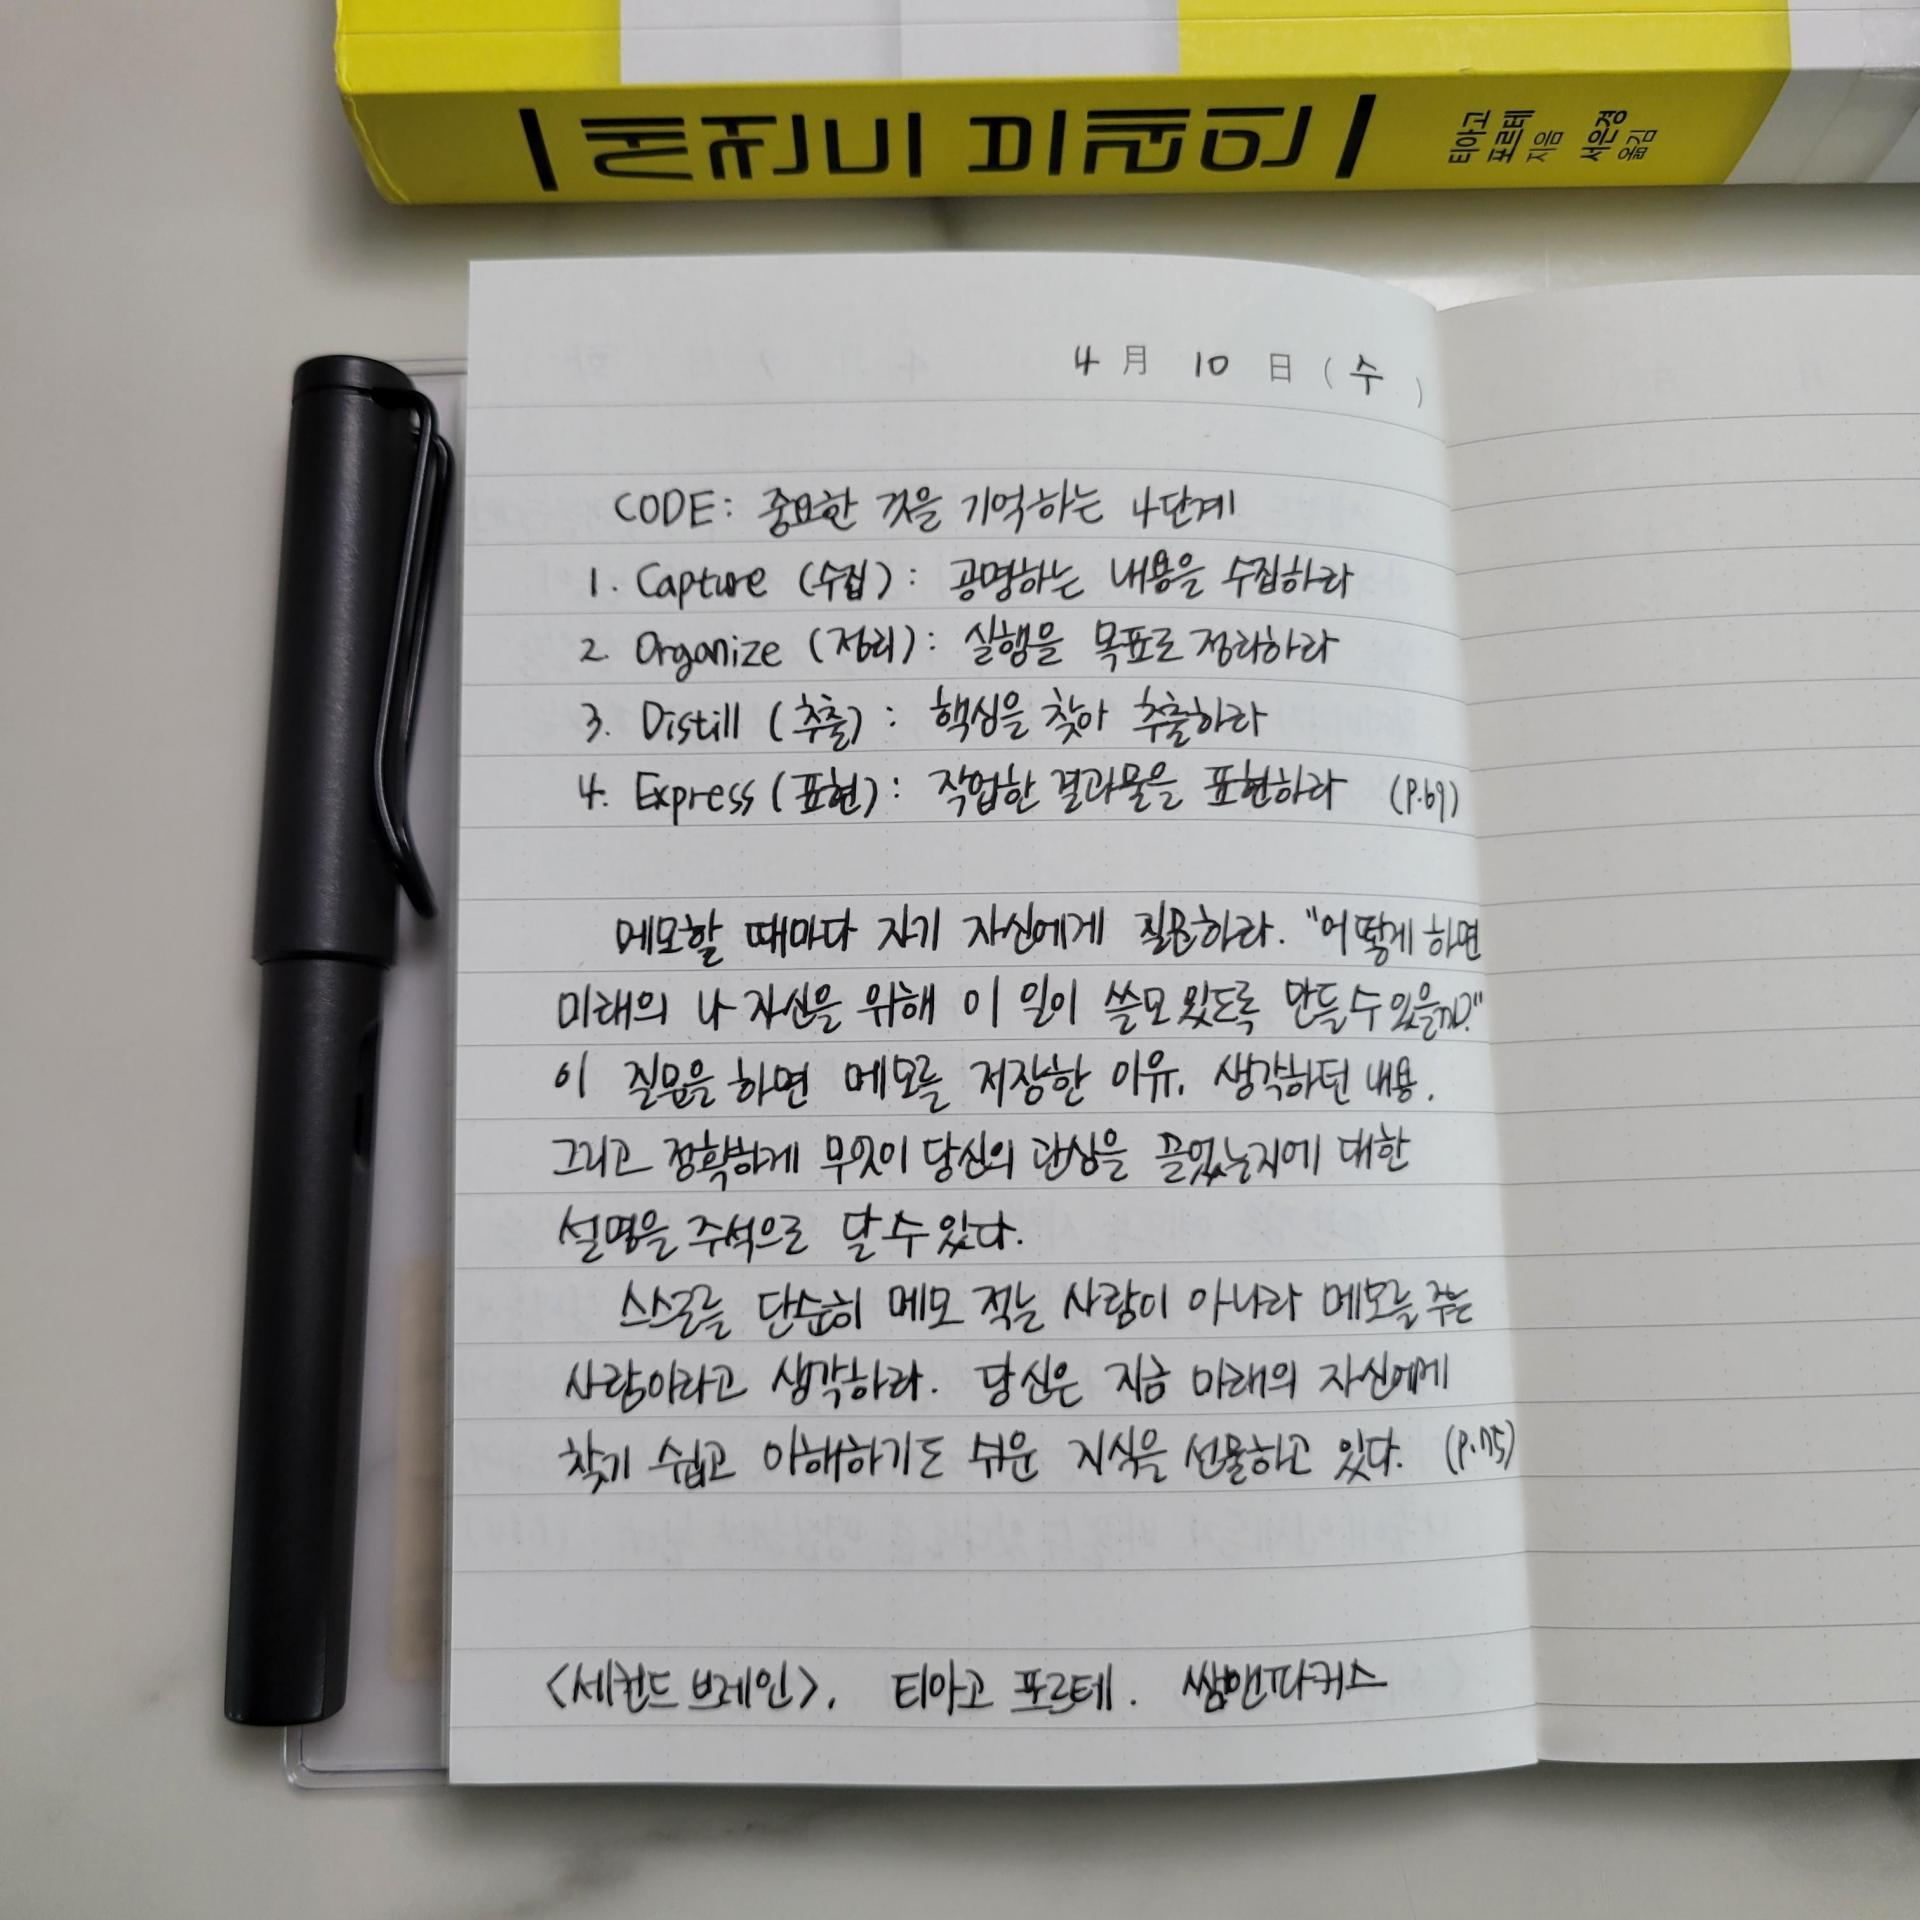 세컨드 브레인
티아고
포르테
지음
서은경
옮김
4月 10日(수)
CODE: 중요한 것을 기억하는 4단계
1. Capture (수집): 공명하는 내용을 수집하라
2. Organize (정리): 실행을 목표로 정리하라
3. Distill (추출): 핵심을 찾아 추출하라
4. Express (표현): 작업한 결과물을 표현하라 (P.69)
메모할 때마다 자기 자신에게 질문하라. "어떻게 하면
미래의 나 자신을 위해 이 일이 쓸모 있도록 만들 수 있을까?"
이 질문을 하면 메모를 저장한 이유, 생각하던 내용,
그리고 정확하게 무엇이 당신의 관심을 끌었는지에 대한
설명을 주석으로 달 수 있다.
스스로를 단순히 메모 적는 사람이 아니라 메모를 주는
사람이라고 생각하라. 당신은 지금 미래의 자신에게
찾기 쉽고 이해하기도 쉬운 지식을 선물하고 있다. (P.75)
<세컨드 브레인>, 티아고 포르테. 쌤앤파커스